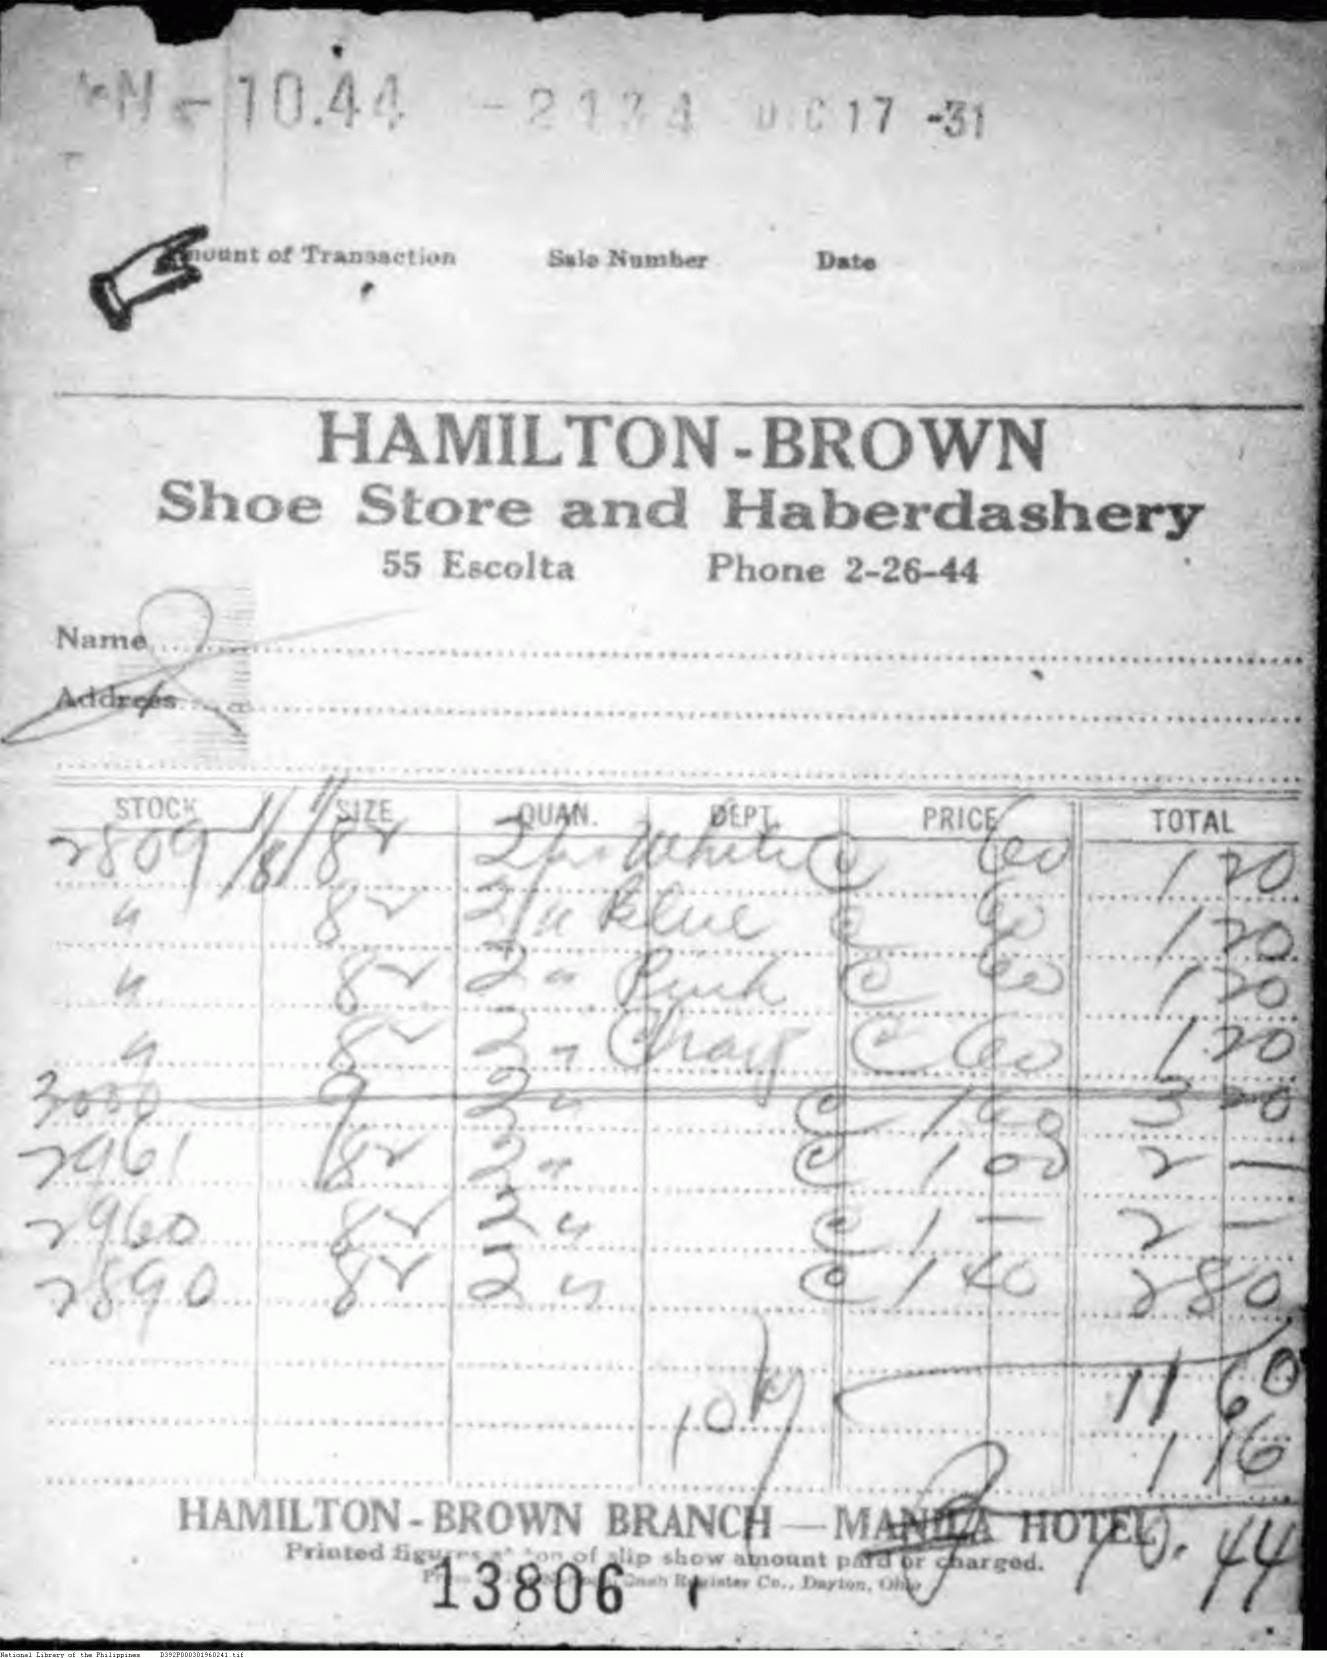 - 10.44 - 2134 DEC 17 -31
Amount of Transaction Sale Number Date
HAMILTON-BROWN
Shoe Store and Haberdashery
55 Escolta Phone 2-26-44
Name
Address
STOCK SIZE QUAN. DEPT. PRICE TOTAL
2809 8½ 2 White @ 60 1 20
" 8½ 2 " Blue @ 60 1 20
" 8½ 2 " @ 60 1 20
" 8½ 2 " @ 60 1 20
3000 9 2 " @ 1 60 3 20
2961 8½ 2 " @ 1 00 2 —
2960 8½ 2 " @ 1 — 2 —
2890 8½ 2 " @ 1 40 2 80
11 60
10% 1 16
HAMILTON-BROWN BRANCH — MANILA HOTEL
10.44
Printed figures at top of slip show amount paid or charged.
Cash Register Co., Dayton, Ohio
13806
National Library of the Philippines D392P000301960241.tif